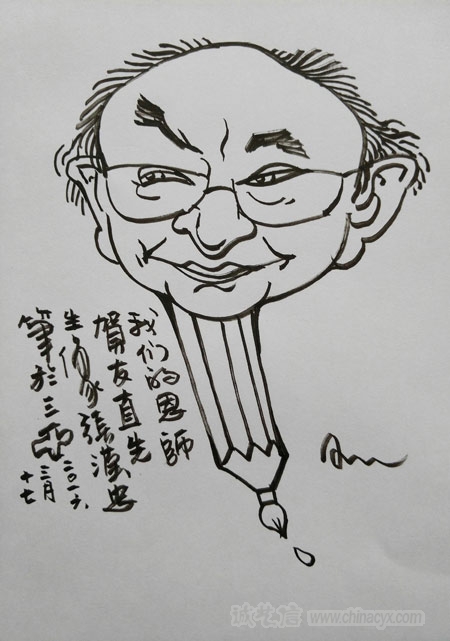 我们的恩師
賀友直先
生像張漢忠
筆於三亞二〇一六
三月
十七
诚艺信 www.chinacyx.com